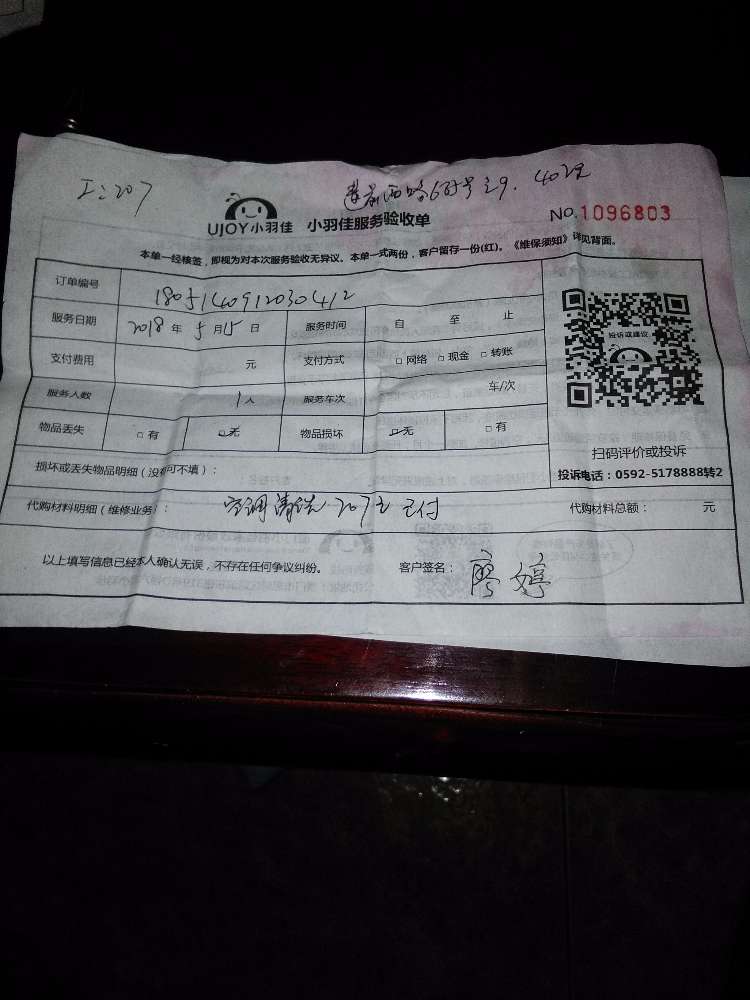 工:207
莲前西路
UJOY小羽佳 小羽佳服务验收单
NO.1096803
本单一经核签，即视为对本次服务验收无异议。本单一式两份，客户留存一份(红)。《维保须知》详见背面。
订单编号 180514091203０412
服务日期 2018 年 5 月 15 日 服务时间 自 至 止
支付费用 元 支付方式 □ 网络 □ 现金 □ 转账
服务人数 1 人 服务车次 车/次
物品丢失 □ 有 □ 无 物品损坏 □ 无 □ 有
投诉或建议
扫码评价或投诉
投诉电话：0592-5178888转2
损坏或丢失物品明细（没有可不填）：
代购材料明细（维修业务）： 空调清洗 207元 已付 代购材料总额： 元
以上填写信息已经本人确认无误，不存在任何争议纠纷。 客户签名： 廖婷